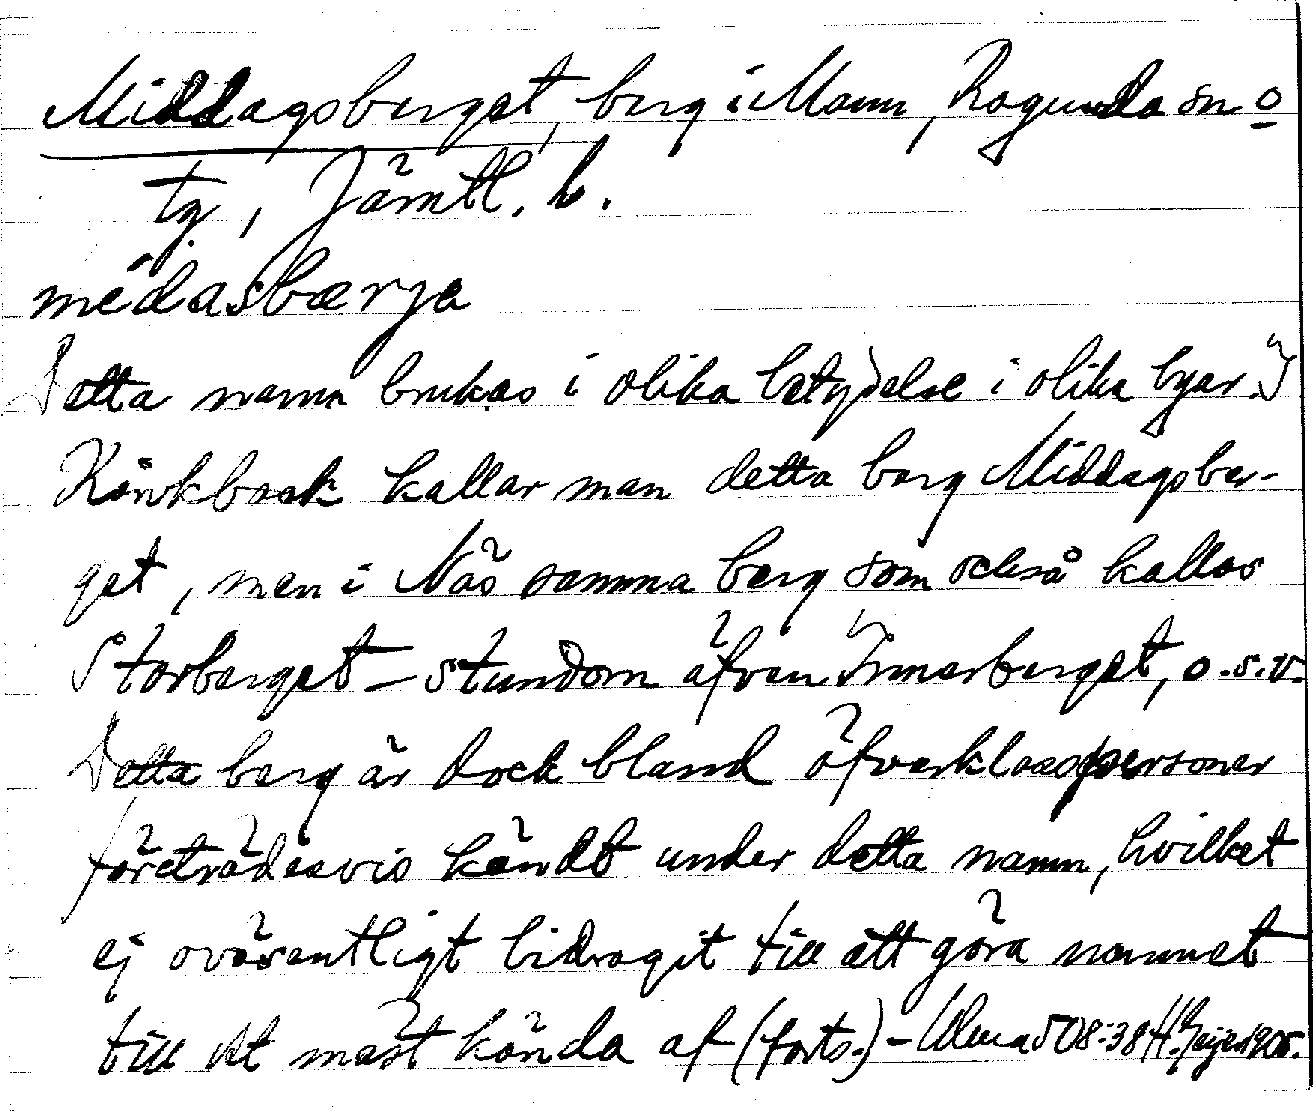 Middagsberget, berg i Mamn, Ragunda sn o
tg, Jämtl. l.
médasbærja
Detta namn brukas i olika betydelse i olika byar. I
Kånkback kallar man detta berg Middagsber-
get, men i Näs samma berg som också kallas
Storberget – stundom äfven Innerberget, o.s.v.
Detta berg är dock bland öfverklasspersoner
företrädesvis kändt under detta namn, hvilket
ej oväsentligt bidragit till att göra namnet
till det mest kända af (forts.) – Ulma 508:38 H. Geijer 1905.